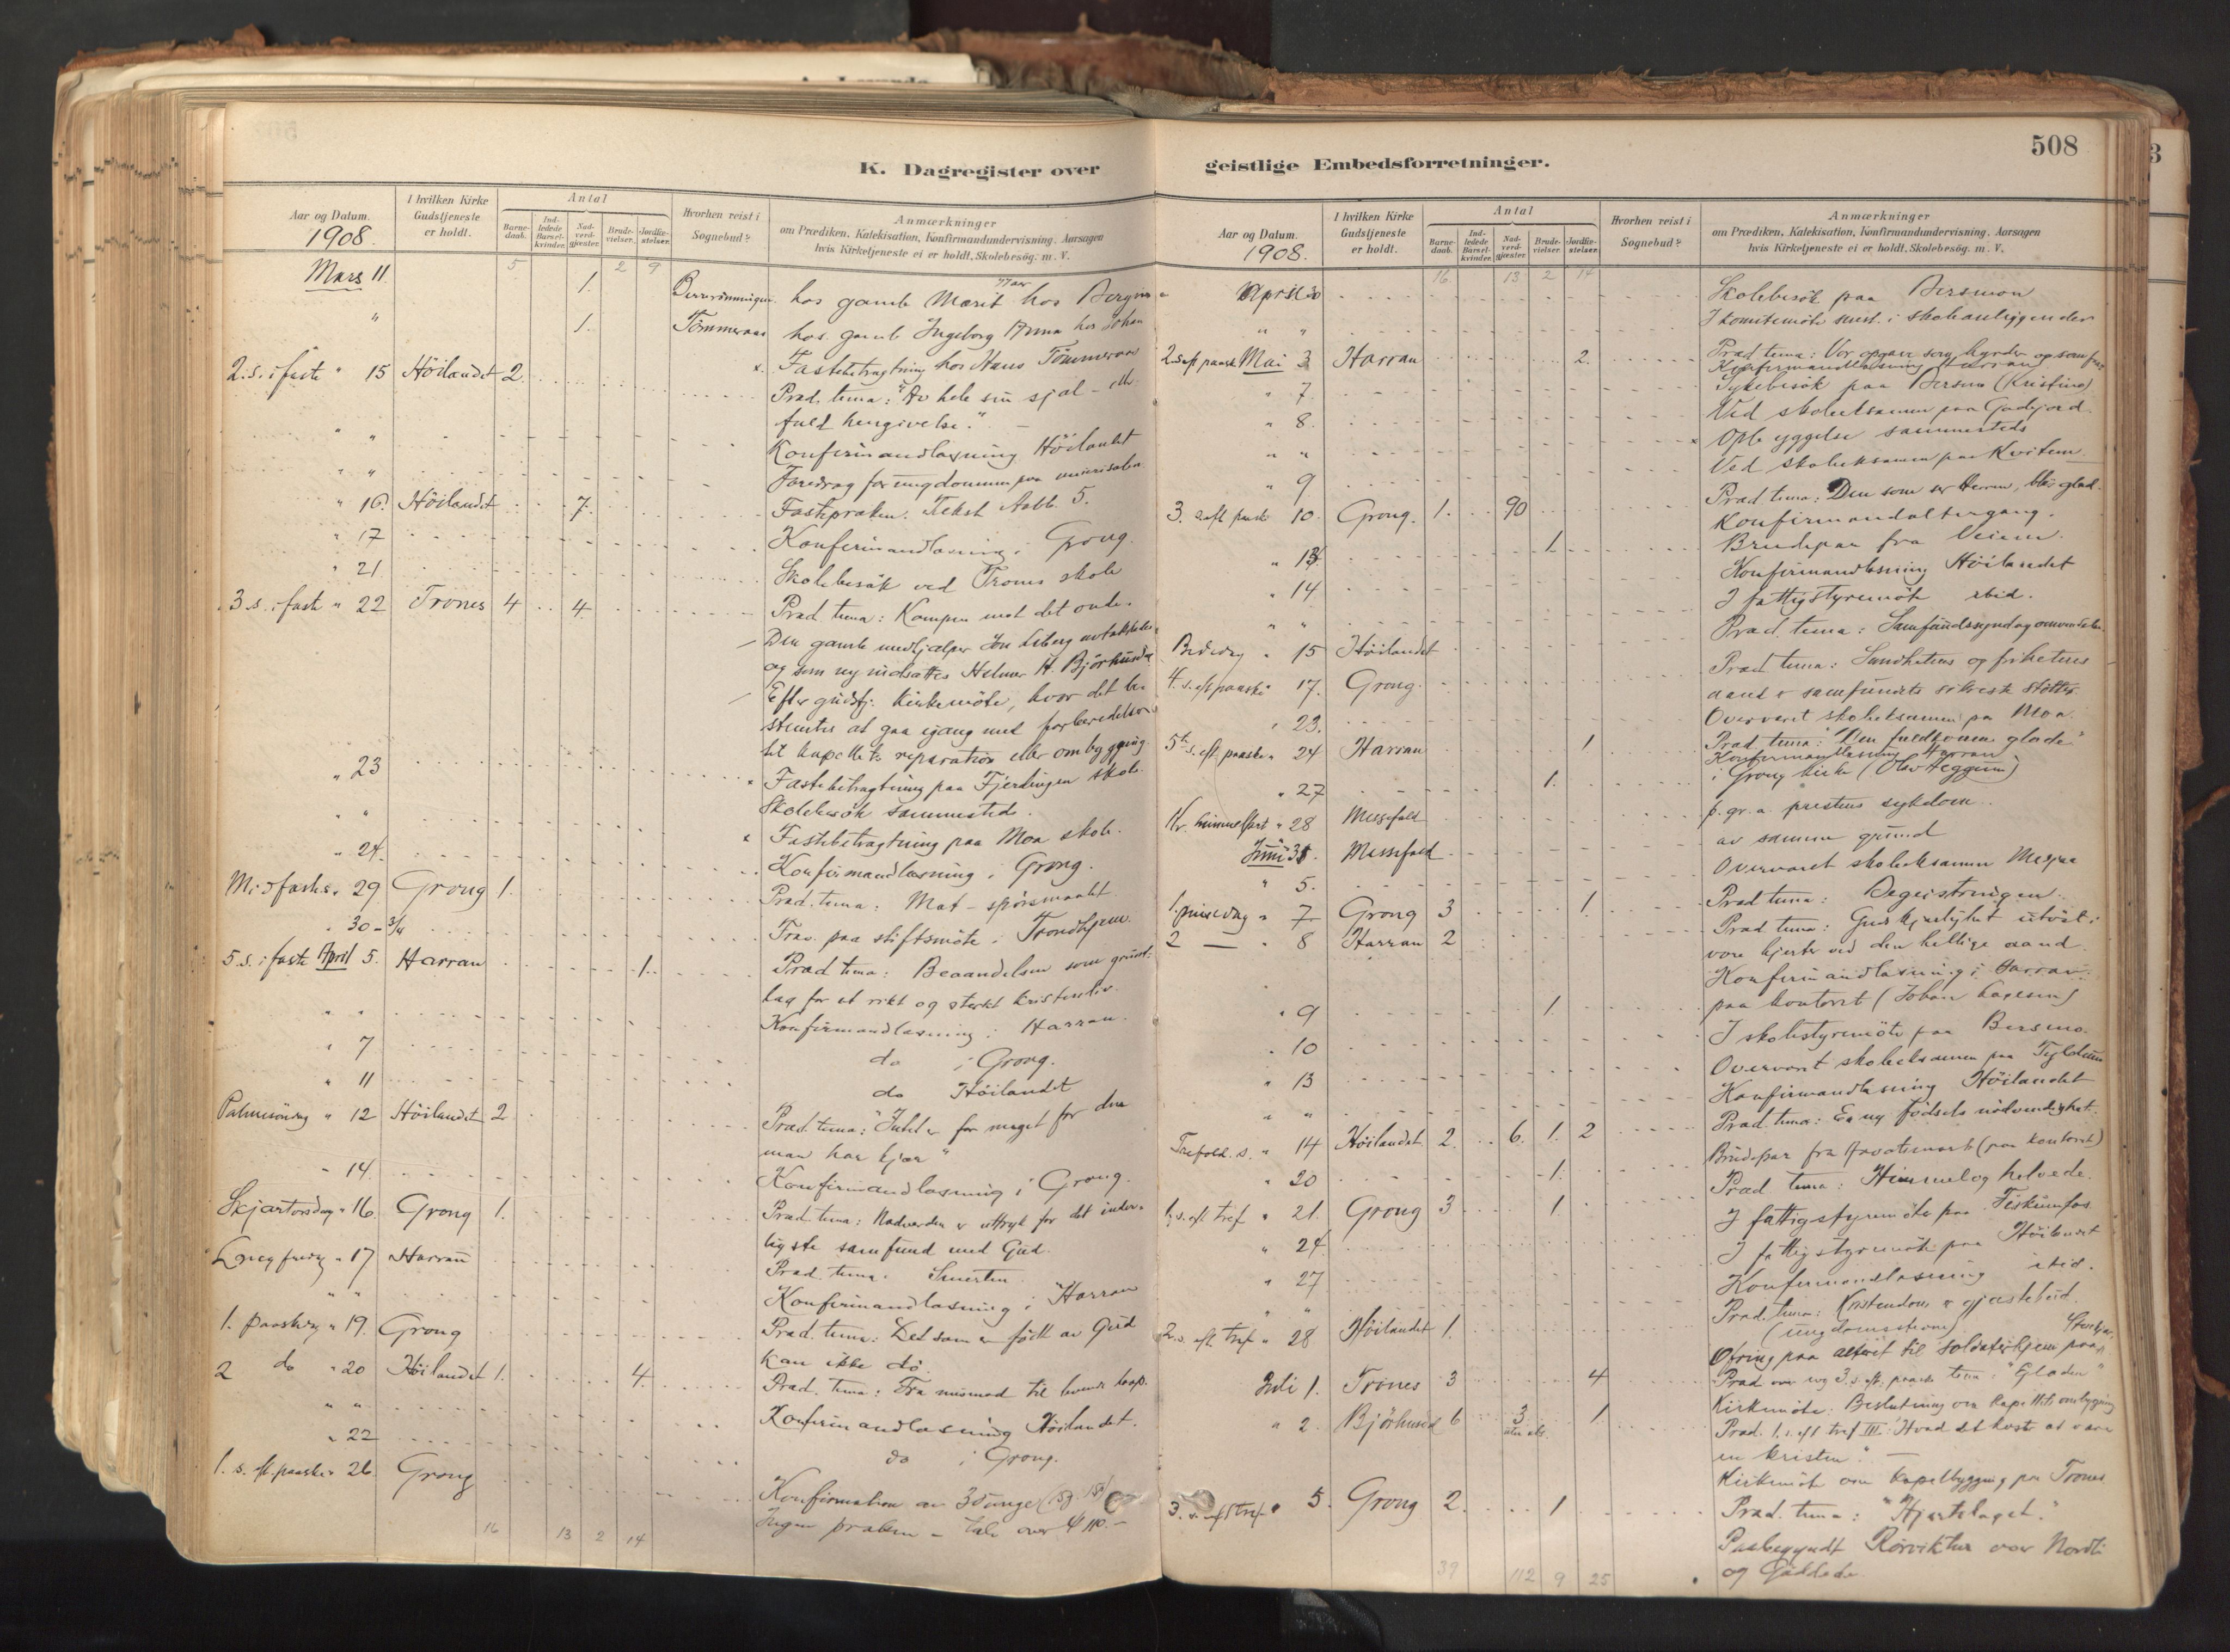 508
K. Dagregister over
geistlige Embedsforretninger.
Aar og Datum.
1908.
I hvilken Kirke Gudstjeneste er holdt.
Antal
Barne-daab.
Ind-ledede Barsel-kvinder.
Nad-verd-gjæster.
Brude-vielser.
Jordfæ-stelser.
Hvorhen reist i Sognebud?
Anmærkninger
om Prædiken, Katekisation, Konfirmandundervisning. Aarsagen
hvis Kirketjeneste ei er holdt, Skolebesøg. m. V.
5 2 9
Mars 11 1. hos gamle Marit 77 aar hos Bergur
" 1. Tømmeraas hos gamle Ingeborg Anna hos Johan
x. Fastebetragtning hos Hans Tømmeraas
2. s. i faste " 15 Höilandet 2 Præd. tema: "Av hele sin sjæl - eller
fuld hengivelse."
" " Konfirmandlæsning Höilandet
" " Foredrag for ungdommen paa
" 16. Höilandet 7. Fastepræken. Tekst Aab. 5.
" 17 Konfirmandlæsning i Grong.
" 21. Skolebesøk ved Trones skole
3 s. i faste " 22 Trones 4 4. Præd. tema: Kampen mot det onde.
Den gamle medhjælper Jon avtakkedes
og som ny indsattes Helmer H. Björhusdal
Efter gudstj. kirkemöte, hvor det be-
stemtes at gaa igang med forberedelser
til kapellets reparation eller ombygging.
" 23 x Fastebetragtning paa Fjerdingen skole
" " Skolebesøk sammesteds.
" 24. x Fastebetragtning paa Moa skole.
Konfirmandlæsning i Grong.
Midfaste s. 29 Grong 1. Præd. tema: Mat-spörsmaalet.
" 30 - 3/4 Trav. paa stiftsmöte i Trondhjem.
5. s. i faste April 5. Harran 1. Præd. tema: Beaandelsen som grund-
lag for et rikt og sterkt kristenliv.
" " Konfirmandlæsning i Harran.
" 7 do i Grong.
" 11 do Höilandet
Palmesöndag " 12 Höilandet 2 Præd. tema: "Intet er for meget for den
man har kjær"
" 14. Konfirmandlæsning i Grong.
Skjærtorsdag " 16. Grong 1. Præd. tema: Nadverden er uttryk for det inder-
ligste samfund med Gud.
Langfredag " 17 Harran Præd. tema: Smerten
" " Konfirmandlæsning i Harran
1. paaskedag " 19. Grong Præd. tema: Det som er født av Gud
kan ikke dö.
2 do " 20 Höilandet 1. 4. Præd. tema: Fra mismod til levende haap.
" " Konfirmandlæsning Höilandet.
" 22 do i Grong.
1. s. eft. paaske " 26. Grong Konfirmation av 35 unge
Ingen præken - tale over 110.-
16 13 2 14
Aar og Datum.
1908.
I hvilken Kirke Gudstjeneste er holdt.
Antal
Barne-daab.
Ind-ledede Barsel-kvinder.
Nad-verd-gjæster.
Brude-vielser.
Jordfæ-stelser.
Hvorhen reist i Sognebud?
Anmærkninger
om Prædiken, Katekisation, Konfirmandundervisning. Aarsagen
hvis Kirketjeneste ei er holdt. Skolebesøg. m. V.
16 13 2 14
April 30 Skolebesök paa Bersmon
" " I komitemöte i skoleanliggender
2. s. eft paaske Mai 3 Harran 2. Præd. tema: Vor opgave som hyrder og som faar
Konfirmandlæsning Harran
" 7. Sykebesök paa Bersmo (Kristine)
" 8. Ved skoleeksamen paa Gartland
" " x Opbyggelse sammesteds
" 9 Ved skoleeksamen paa Kvitem
3. s. eft paaske 10. Grong. 1. 90 Præd. tema: Den som ser Herren, blir glad.
Konfirmandaltergang.
" 13. 1 Brudepar fra Veiem.
" 14 Konfirmandlæsning Höilandet
" " I fattigstyremöte ibid.
Bededag " 15 Höilandet Præd. tema: Samfundssynd og omvendelse.
4. s. eft paaske " 17. Grong. Præd. tema: Sandhetens og frihetens
aand er samfundets sikreste stötter.
" 23. Overværet skoleeksamen paa Moa.
5te s. eft paaske " 24 Harran 1 Præd. tema: "Den fuldkomne glæde"
Konfirmandlæsning Harran
" 27 1. i Grong kirke (Olav Heggum)
Kr. himmelfart " 28 Messefald p. gr. a. prestens sykdom.
Mai 31. Messefald av samme grund
" 5. Overværet skoleeksamen
1. pinsedag " 7 Grong 3 1. Præd. tema: Begeistringen.
2 — " 8 Harran 2 Præd. tema: Guds kjærlighet utöst i
vore hjerter ved den hellige aand
Konfirmandlæsning i Harran.
" 9 1. paa kontoret (Johan )
" 10 I skolestyremöte paa Bersmo.
" 13 Overværet skoleeksamen paa
" " Konfirmandlæsning Höilandet
Trefold. s. " 14 Höilandet 2. 6. 1. 2 Præd. tema: En ny födsels nödvendighet.
" 20 1. Brudepar fra (paa kontoret)
1. s. eft tref. " 21. Grong 3 1 Præd. tema: Himmel og helvede.
" 24. I fattigstyremöte paa Fiskumfos
" 27 I fattigstyremöte paa Höilandet
" " Konfirmandlæsning ibid.
2. s. eft tref " 28 Höilandet 1. Præd. tema: Kristendom er gjæstebud.
(ungdomsstevne)
Ofring paa alteret til soldaterhjem paa
Juli 1. Trones 3 4 Præd. over 3. s. eft. paaske tema: "Glæden"
Kirkemöte. Beslutning om kapellets ombygging
" 2. Björhusd 6 3 1 Præd. 1. s. eft tref III: "Hvad det koster at være
en kristen".
Kirkemöte om kapelbygging paa Trones
3. s. eft tref " 5. Grong 2. 1 Præd. tema: "Hjertelaget."
Paabegyndt Rörviktur over Nordli
og Gäddede
39 112 9 25